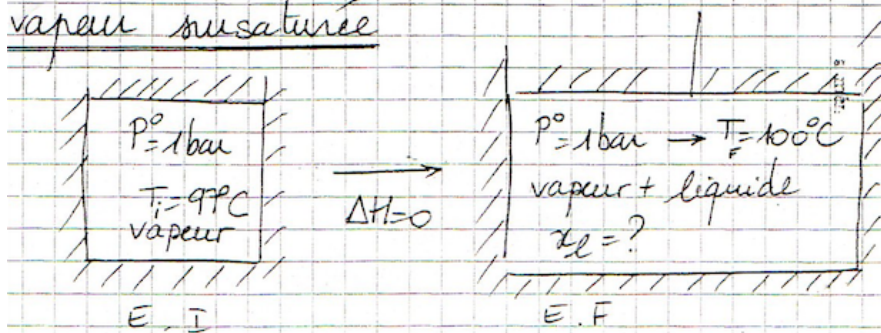 vapeur sursaturée
P°=1bar
Ti=97°C
vapeur
ΔH=0
P°=1bar → T_F=100°C
vapeur + liquide
x_l=?
E.I
E.F